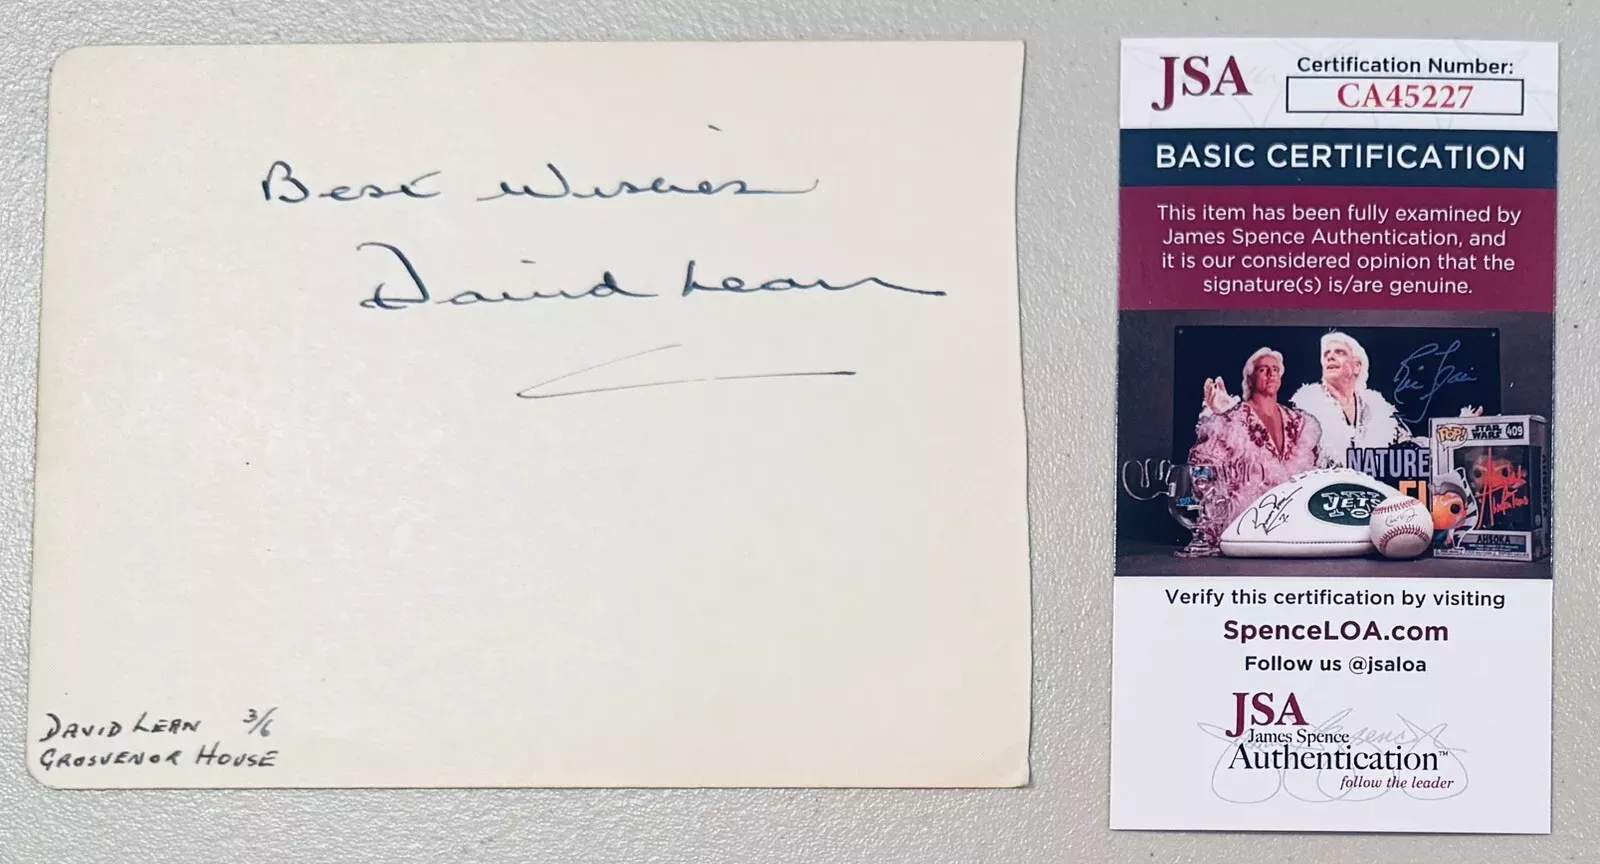 Best Wishes
David Lean
DAVID LEAN 3/6
GROSVENOR HOUSE
JSA
Certification Number:
CA45227
BASIC CERTIFICATION
This item has been fully examined by
James Spence Authentication, and
it is our considered opinion that the
signature(s) is/are genuine.
Ric Flair
NATURE
POP! STAR WARS 409
JETS
AHSOKA
Verify this certification by visiting
SpenceLOA.com
Follow us @jsaloa
JSA
James Spence
Authentication™
follow the leader